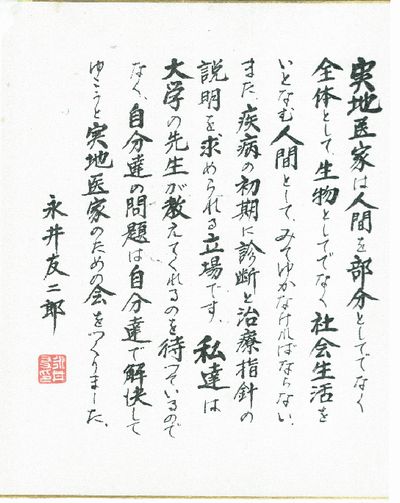 実地医家は人間を部分としてでなく
全体として、生物としてでなく社会生活を
いとなむ人間として、みてゆかなければならない、
また、疾病の初期に診断と治療指針の
説明を求められる立場です。私達は
大学の先生が教えてくれるのを待っているので
なく、自分達の問題は自分達で解決して
ゆこうと実地医家のための会をつくりました。
永井友二郎